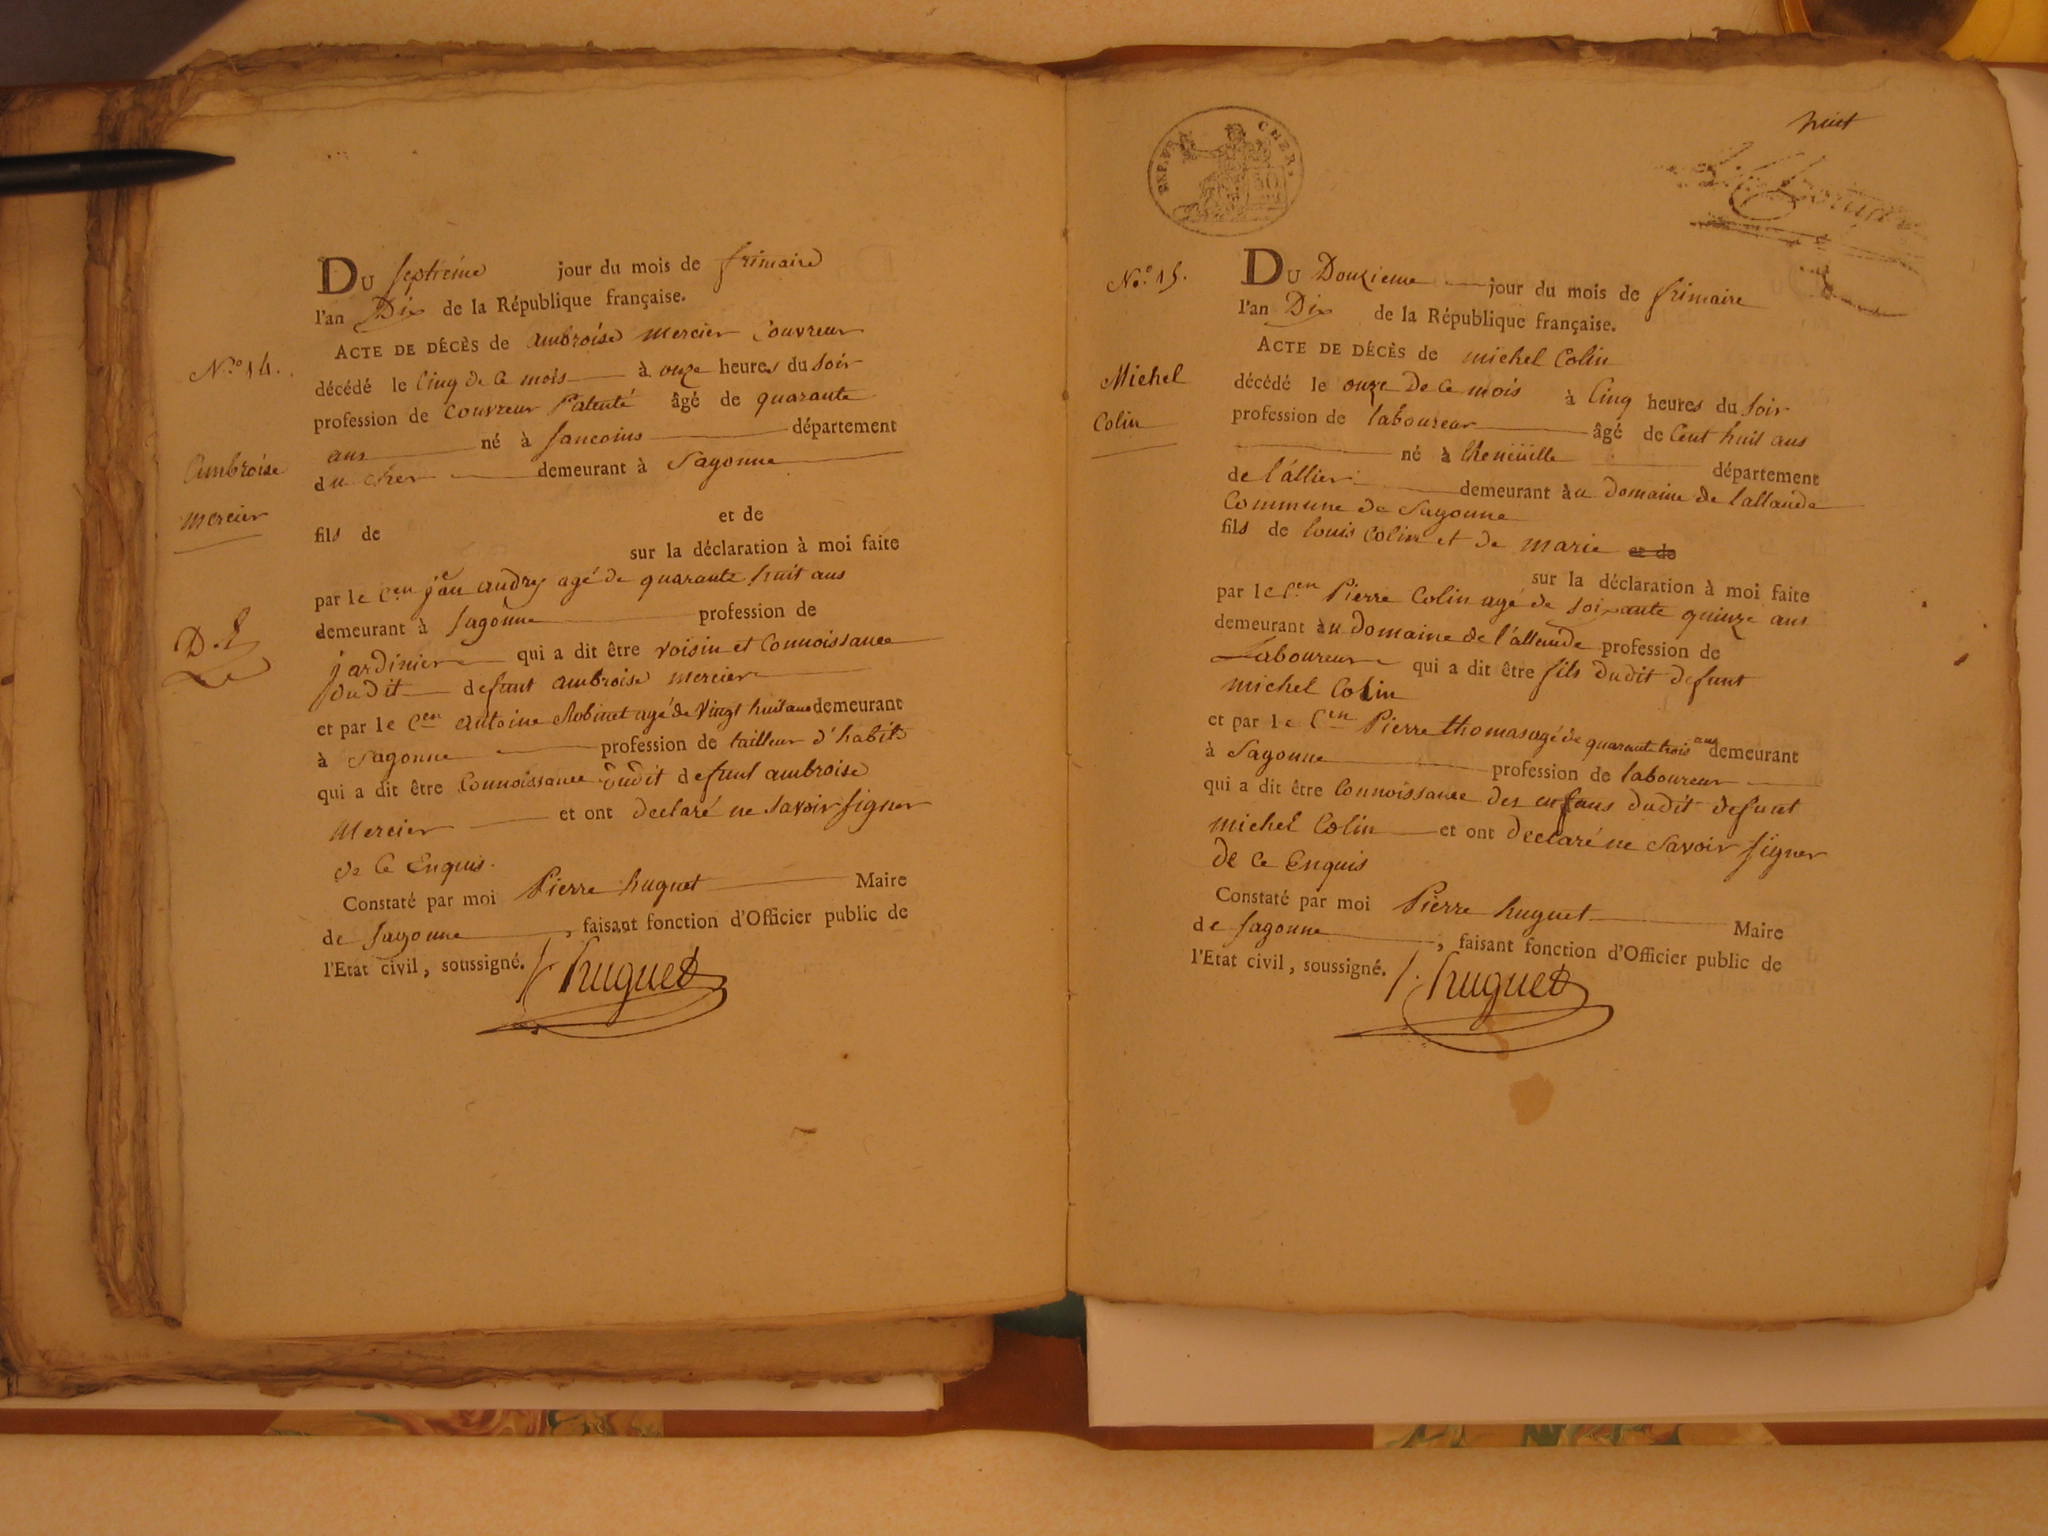 N.o 14.
Ambroise
mercier
D.
DU septieme jour du mois de frimaire
l'an Dix de la République française.
ACTE DE DÉCÈS de ambroise mercier Couvreur
décédé le Cinq de ce mois à onze heures du soir
profession de Couvreur Patenté âgé de quarante
ans né à sancoins département
du cher demeurant à Sagonne
fils de et de
sur la déclaration à moi faite
par le Cen jean audry agé de quarante huit ans
demeurant à sagonne profession de
jardinier qui a dit être voisin et Connoissance
dudit defunt ambroise mercier
et par le Cen antoine Robinet agé de vingt huit ans demeurant
à Sagonne profession de tailleur d'habits
qui a dit être Connoissance dudit defunt ambroise
Mercier et ont declaré ne savoir signer
de ce Enquis.
Constaté par moi Pierre huguet Maire
de sagonne, faisant fonction d'Officier public de
l'Etat civil, soussigné. P. huguet
REP. FRA. CHER.
huit
No. 15.
Michel
Colin
DU Douzieme jour du mois de frimaire
l'an Dix de la République française.
ACTE DE DÉCÈS de michel Colin
décédé le onze De ce mois à Cinq heures du soir
profession de laboureur âgé de Cent huit ans
né à département
de l'allier demeurant au domaine de lallande
Commune de Sagonne
fils de louis Colin et de marie et de
sur la déclaration à moi faite
par le Cen Pierre Colin agé de soixante quinze ans
demeurant au domaine de l'allende profession de
Laboureur qui a dit être fils dudit defunt
michel Colin
et par le Cen Pierre thomas agé de quarante trois ans demeurant
à Sagonne profession de laboureur
qui a dit être Connoissance des enfans dudit defunt
michel Colin et ont declaré ne savoir signer
de ce Enquis
Constaté par moi Pierre huguet Maire
de sagonne, faisant fonction d'Officier public de
l'Etat civil, soussigné. P. huguet